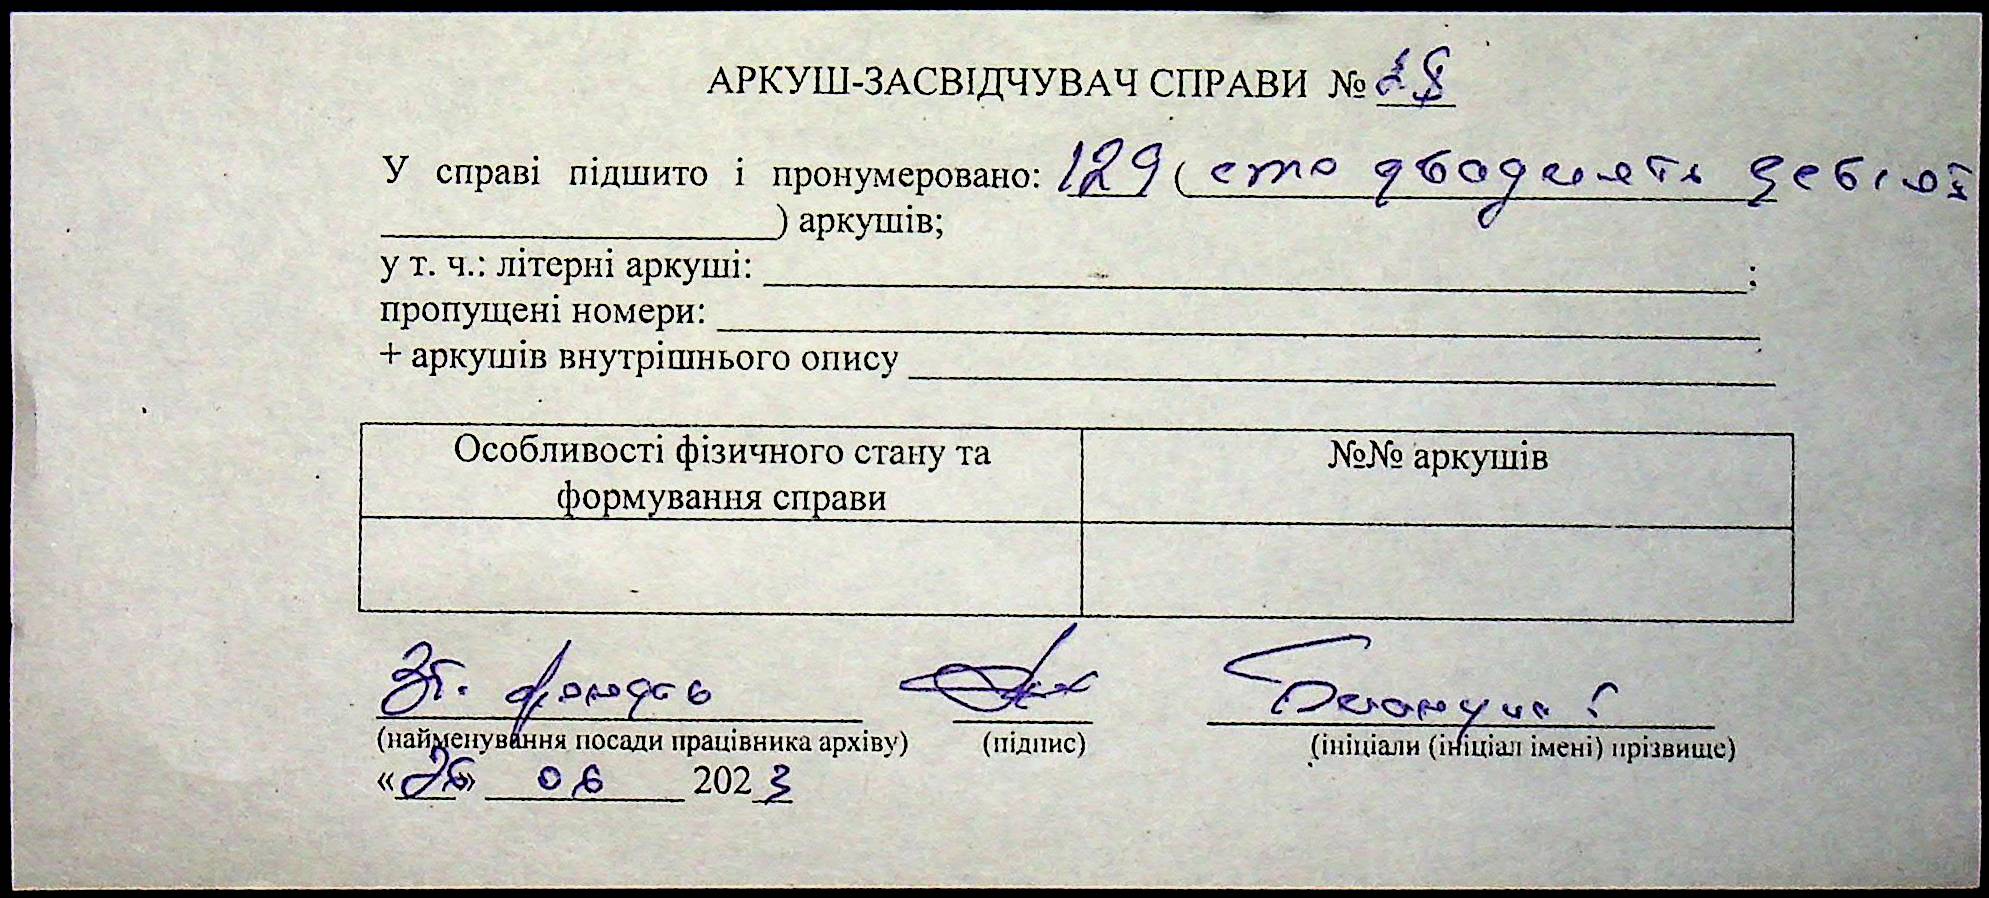 АРКУШ-ЗАСВІДЧУВАЧ СПРАВИ № 28
У справі підшито і пронумеровано: 129 (сто двадцять девіять
) аркушів;
у т. ч.: літерні аркуші: ;
пропущені номери:
+ аркушів внутрішнього опису
Особливості фізичного стану та формування справи
№№ аркушів
Зб. фондів
(найменування посади працівника архіву) (підпис) (ініціали (ініціал імені) прізвище)
«26» 06 2023